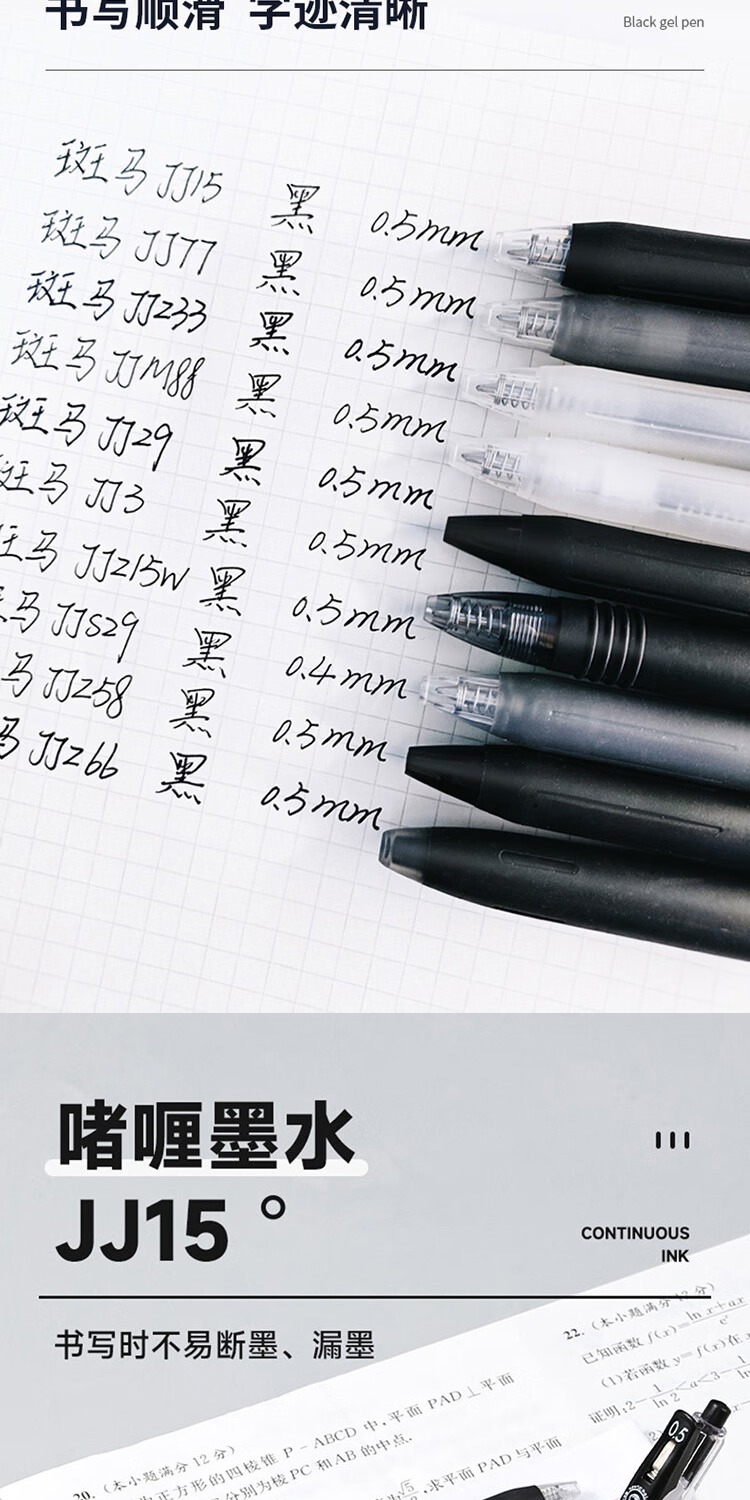 书写顺滑 字迹清晰
Black gel pen
斑马 JJ15 黑 0.5mm
斑马 JJ77 黑 0.5mm
斑马 JJZ33 黑 0.5mm
斑马 JJM88 黑 0.5mm
斑马 JJ29 黑 0.5mm
斑马 JJ3 黑 0.5mm
马 JJZ15W 黑 0.5mm
马 JJS29 黑 0.4mm
马 JJZ58 黑 0.5mm
马 JJZ66 黑 0.5mm
啫喱墨水
JJ15
CONTINUOUS
INK
书写时不易断墨、漏墨
22.（本小题满分12分）
已知函数 f(x)=
(1)若函数 y=f(x)在
证明:2-
20.（本小题满分12分）
为正方形的四棱锥 P-ABCD 中,平面 PAD⊥平面
分别为棱 PC 和 AB 的中点.
,求平面 PAD 与平面
0.5